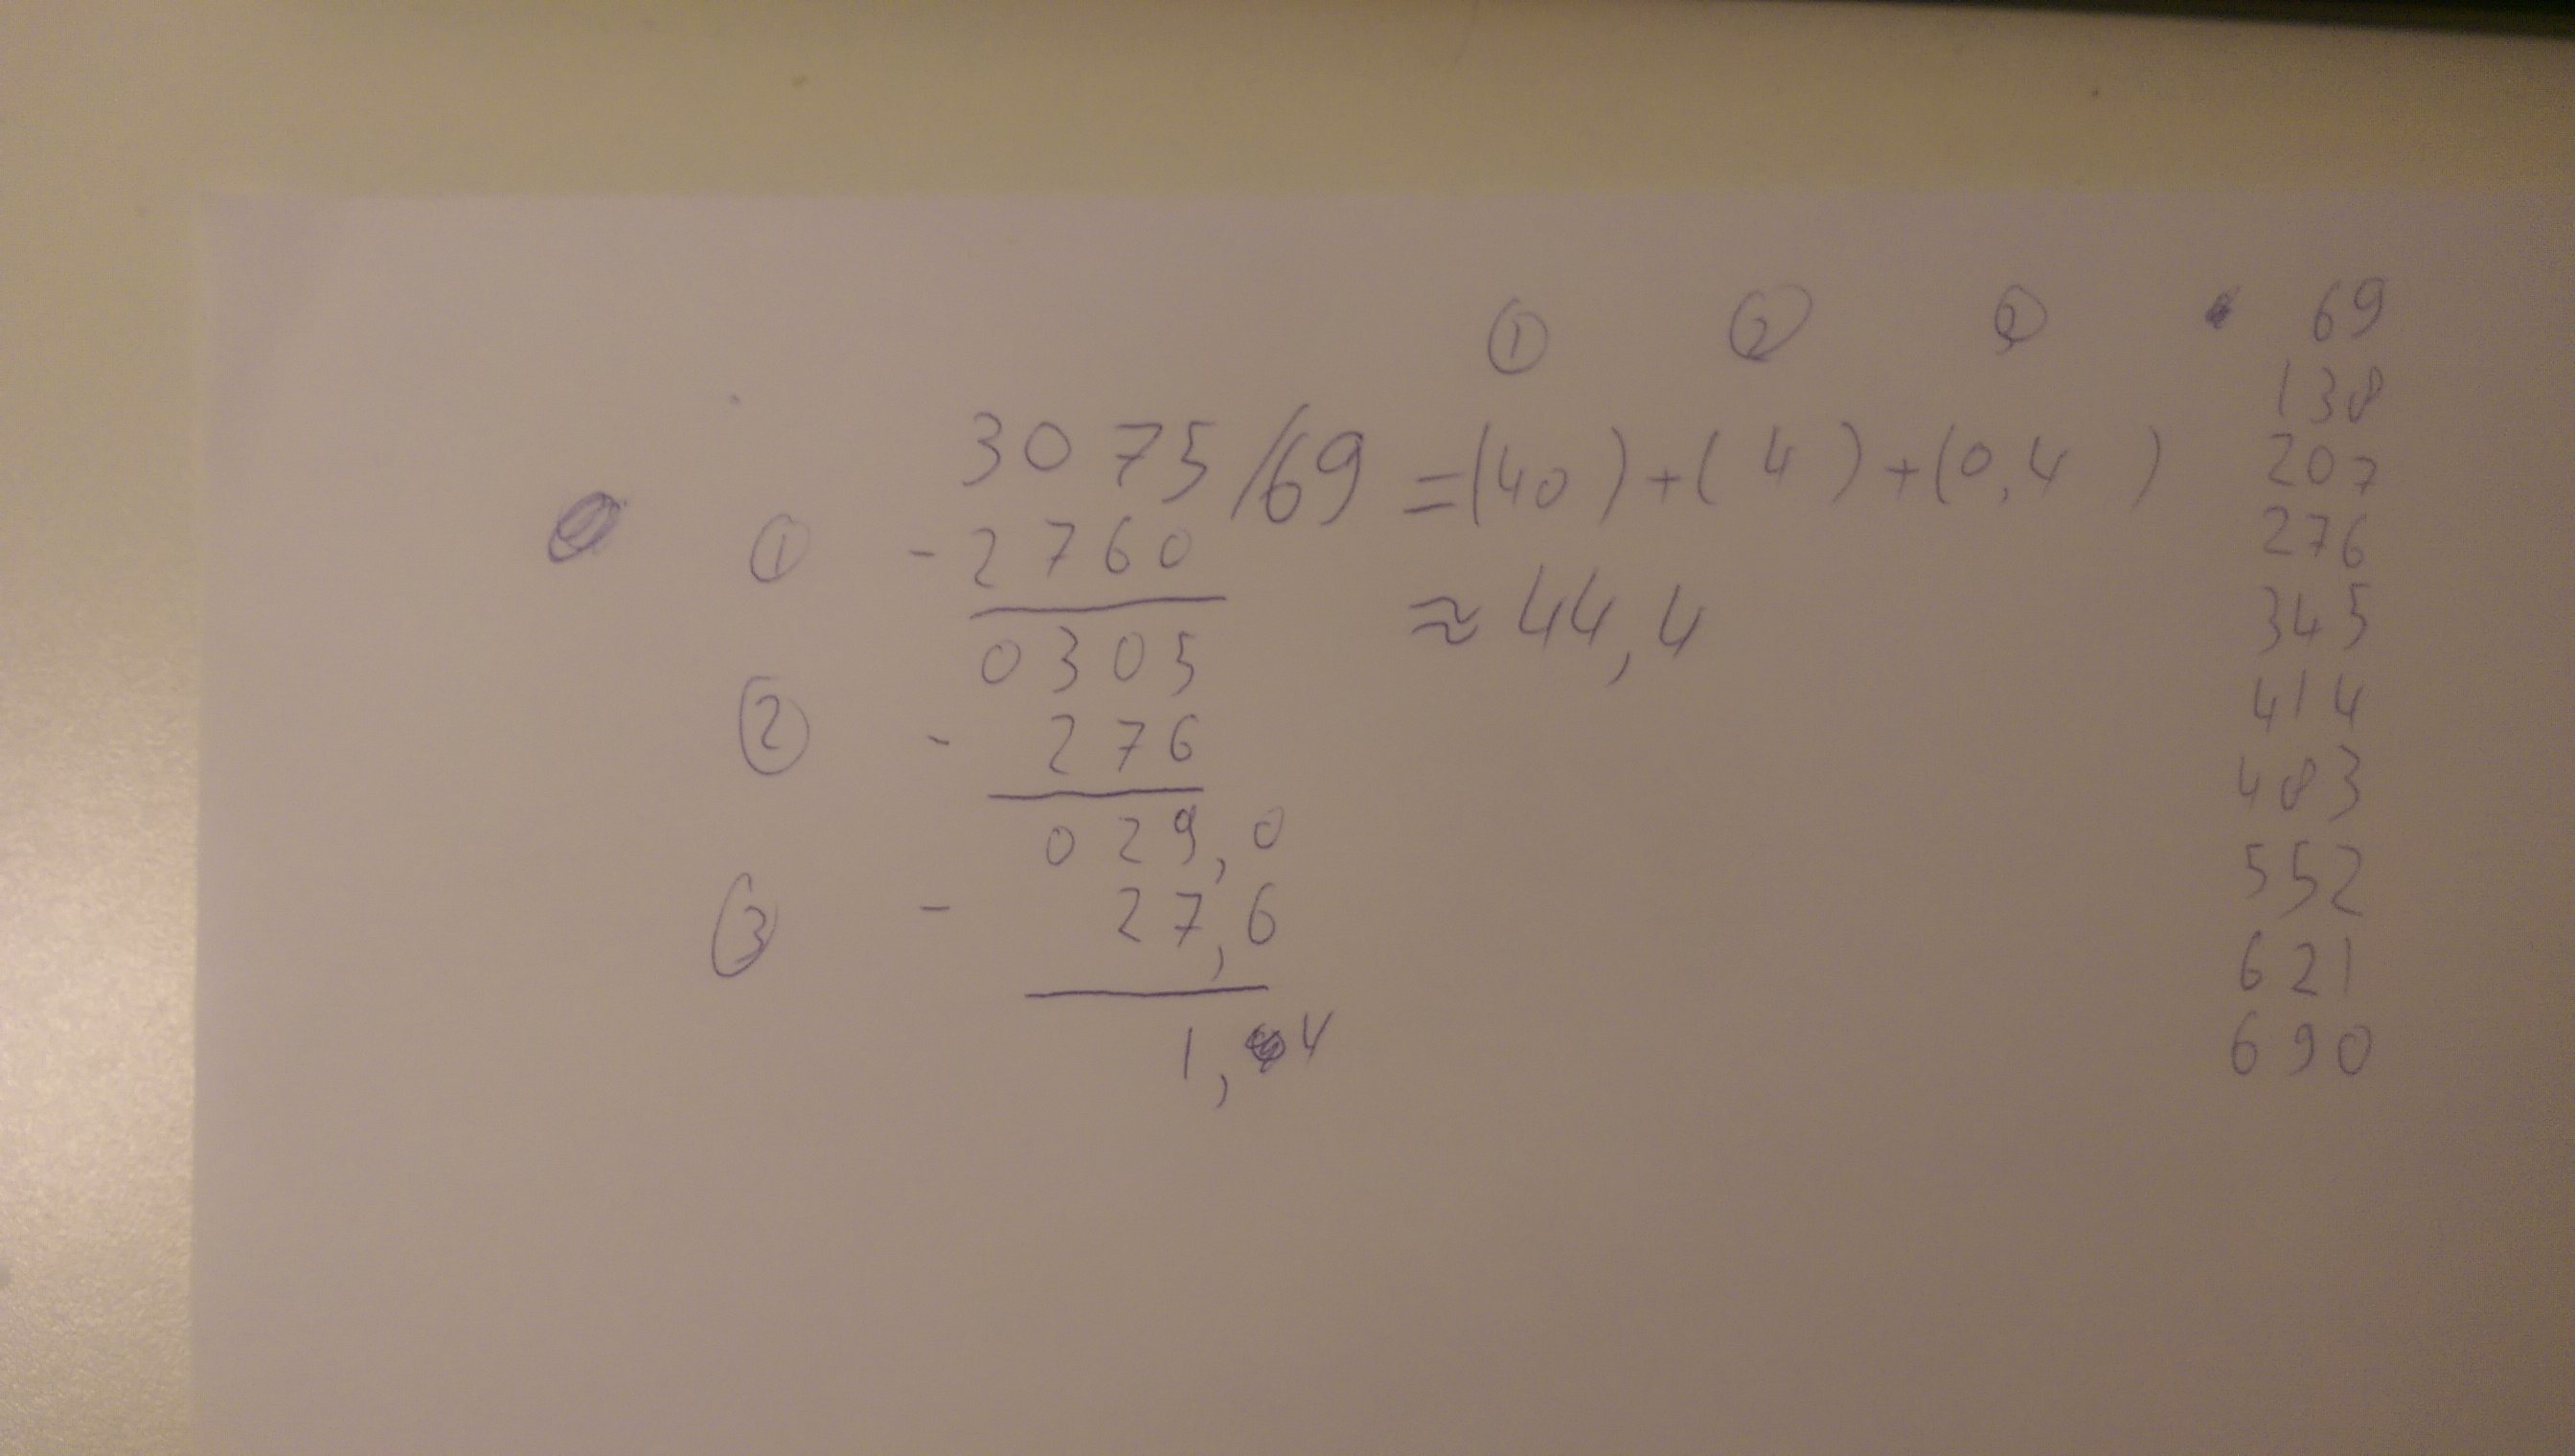 ① ② ③
3075/69 =(40)+(4)+(0,4)
① -2760
≈ 44,4
0305
② - 276
029,0
③ - 27,6
1,4
69
138
207
276
345
414
483
552
621
690